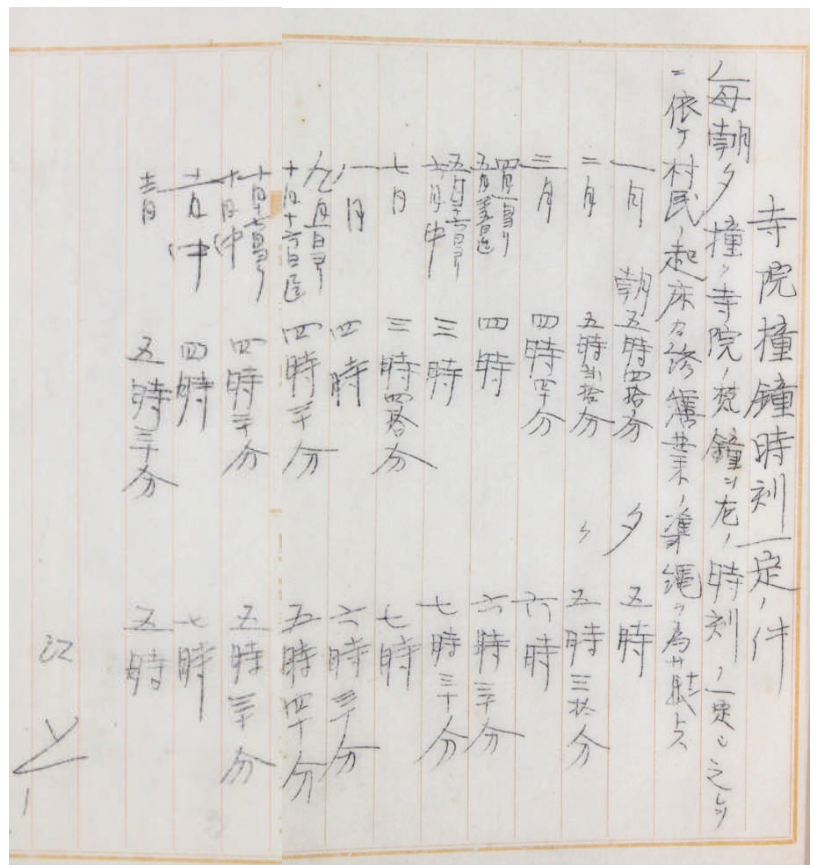 寺院撞鐘時刻一定ノ件
毎朝夕撞ク寺院ノ梵鐘ヲ左ノ時刻ニ一定シ之レ
ニ依テ村民ノ起床及終業ノ準縄ヲ為サントス
一月 朝 五時四拾分 夕 五時
二月 五時弐拾分 〃 五時三拾分
三月 四時四十分 六時
四月一日ヨリ五月十五日迄 四時 六時三十分
五月十六日ヨリ六月中 三時 七時三十分
七月 三時四拾分 七時
八月 四時 六時三十分
九月一日ヨリ十月十六日迄 四時三十分 五時四十分
十月十七日ヨリ十月中 四時三十分 五時三十分
十一月中 四時 七時
十二月 五時三十分 五時